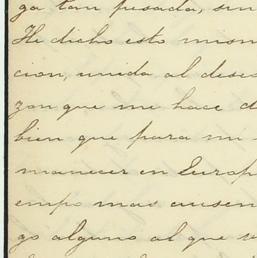 ga tan pesada, sin
He dicho esto mism
cion, unida al dese
zon que me hace d
bien que para mi
manecer en Europ
empo mas ausen
go alguno al que s